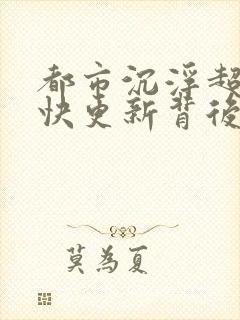 都市沉浮超
快更新背後
莫為夏